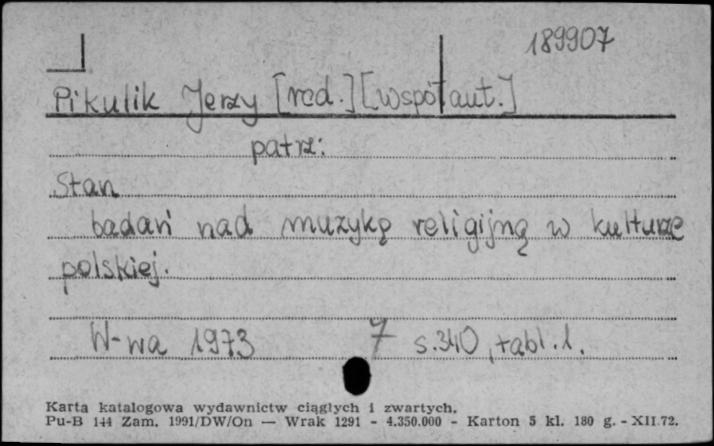 189907
Pikulik Jerzy [red.] [współaut.]
patrz:
Stan
badań nad muzyką religijną w kulturze
polskiej.
W-wa 1973 7 s. 340, tabl. 1.
Karta katalogowa wydawnictw ciągłych i zwartych.
Pu-B 144 Zam. 1991/DW/On — Wrak 1291 - 4.350.000 - Karton 5 kl. 180 g. - XII.72.